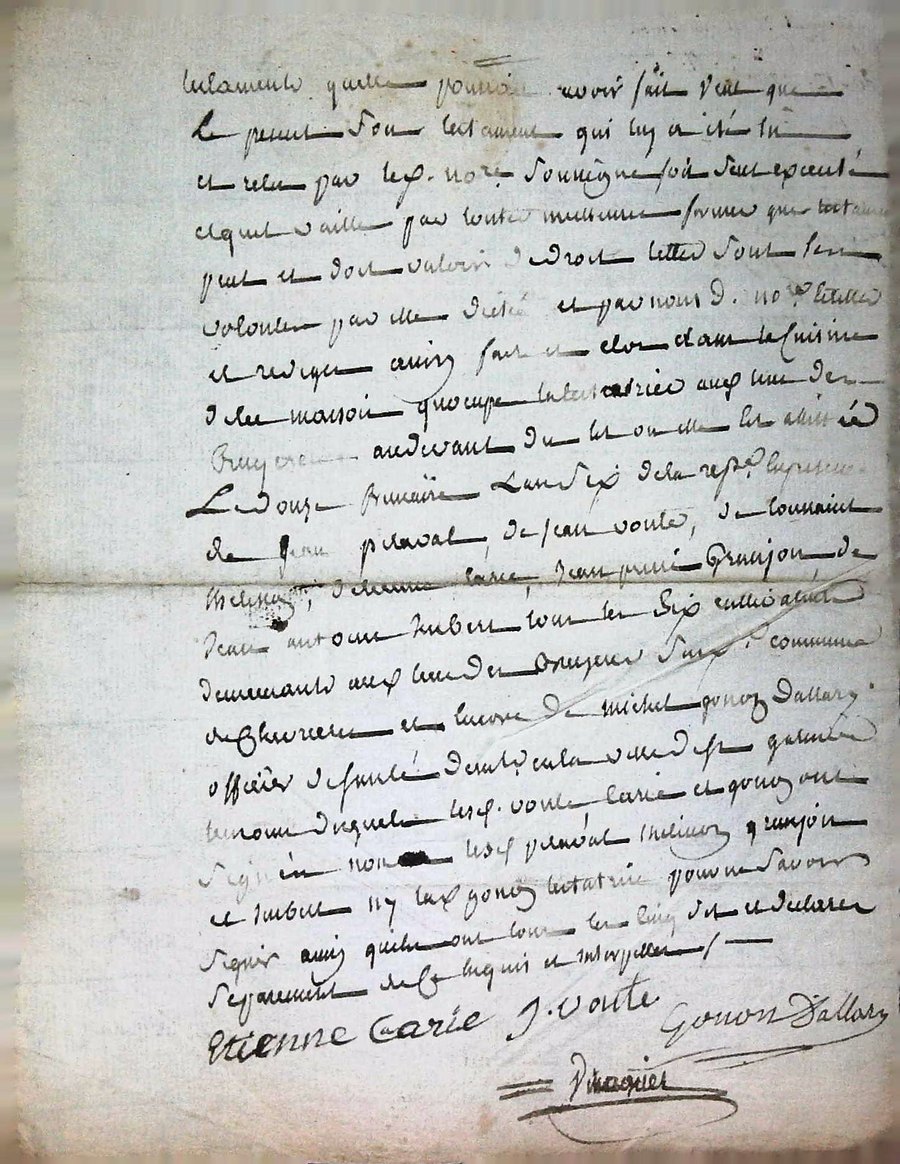 testaments quelle pourroit avoir fait veut que
Le present son testament qui luy a été lu
et relu par led. nore. soussigne soit seul executé
et quil vaille par toutte meilleure forme que testament
peut et doit valoir de droit telles sont ses
volontes par elle dicté et par nous d. nore. ecrittes
et redigés ainsy fait et clos dans la cuisine
de la maison quocupe la testatrice aux lieu des
Bruyeres audevant du lit ou elle est alittée
Le douze frimaire L'an six de la repe. En presence
de Jean peraval, de Jean vonte, de tonnaint
thelisson, detienne Carie, Jean pierre Granjon, de
Jean antoine hubert tous les six cultivateurs
demeurants aux lieu des Bruyeres susd. commune
de et encore de michel gonon Dallary
officier de santé demt. en la ville de st galmier
temoins desquels lesd. vonte Carie et gonon ont
signés non lesd peraval thelisson granjon
et hubert ny lad gonon testatrice pour ne savoir
signer ainsy quils ont tous les cinq dit et declarés
separement de ce enquis et interpellés /
Etienne Carie J. vonte Gonon Dallary